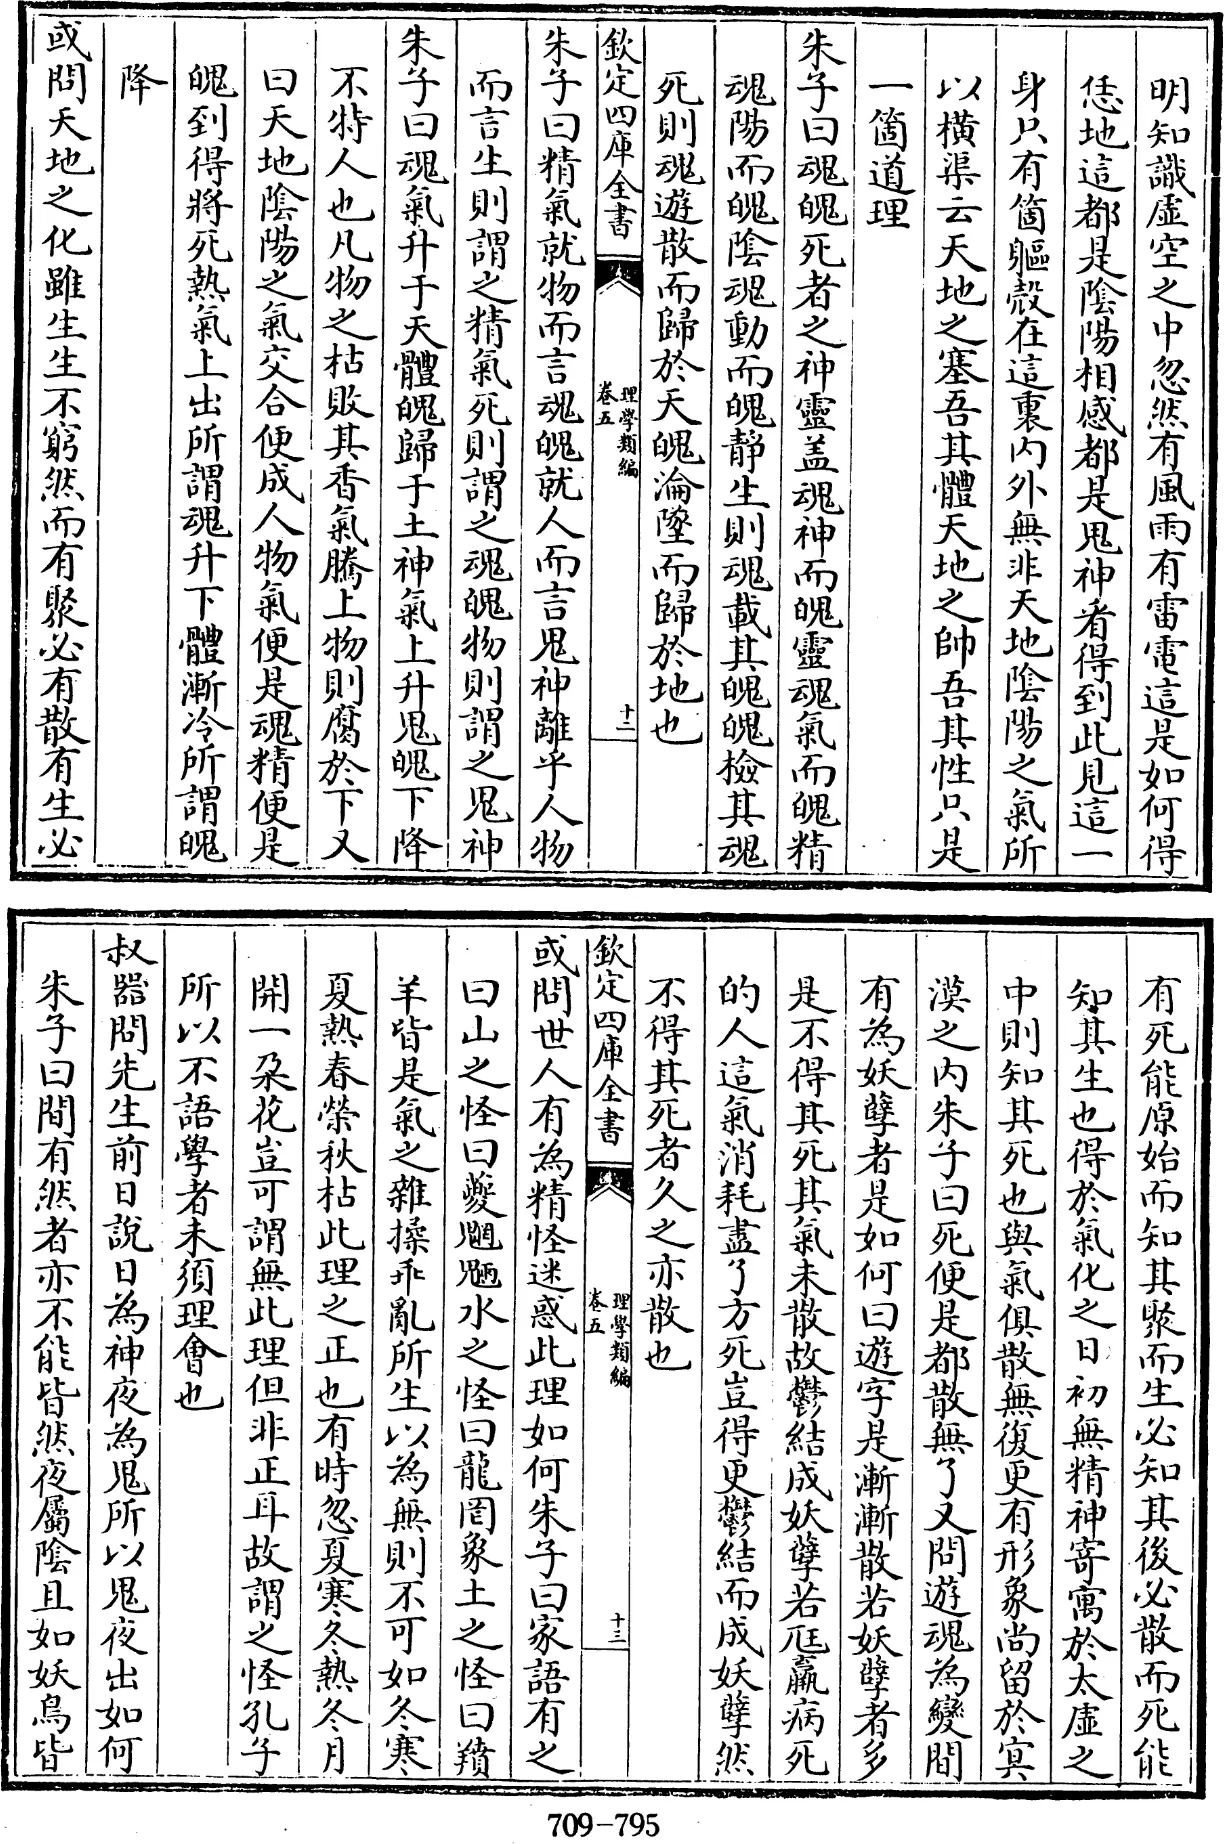 明知識虛空之中忽然有風雨有雷電這是如何得
恁地這都是陰陽相感都是鬼神看得到此見這一
身只有箇軀殼在這裏內外無非天地陰陽之氣所
以橫渠云天地之塞吾其體天地之帥吾其性只是
一箇道理
朱子曰魂魄死者之神靈盖魂神而魄靈魂氣而魄精
魂陽而魄陰魂動而魄靜生則魂載其魄魄檢其魂
死則魂遊散而歸於天魄淪墜而歸於地也
欽定四庫全書
理學類編
卷五
十二
朱子曰精氣就物而言魂魄就人而言鬼神離乎人物
而言生則謂之精氣死則謂之魂魄物則謂之鬼神
朱子曰魂氣升于天體魄歸于土神氣上升鬼魄下降
不特人也凡物之枯敗其香氣騰上物則腐於下又
曰天地陰陽之氣交合便成人物氣便是魂精便是
魄到得將死熱氣上出所謂魂升下體漸冷所謂魄
降
或問天地之化雖生生不窮然而有聚必有散有生必
有死能原始而知其聚而生必知其後必散而死能
知其生也得於氣化之日初無精神寄寓於太虛之
中則知其死也與氣俱散無復更有形象尚留於冥
漠之內朱子曰死便是都散無了又問遊魂為變間
有為妖孽者是如何曰遊字是漸漸散若妖孽者多
是不得其死其氣未散故鬱結成妖孽若尫羸病死
的人這氣消耗盡了方死豈得更鬱結而成妖孽然
不得其死者久之亦散也
欽定四庫全書
理學類編
卷五
十三
或問世人有為精怪迷惑此理如何朱子曰家語有之
曰山之怪曰夔魍魎水之怪曰龍罔象土之怪曰羵
羊皆是氣之雜揉乖亂所生以為無則不可如冬寒
夏熱春榮秋枯此理之正也有時忽夏寒冬熱冬月
開一朶花豈可謂無此理但非正耳故謂之怪孔子
所以不語學者未須理會也
叔器問先生前日說日為神夜為鬼所以鬼夜出如何
朱子曰間有然者亦不能皆然夜屬陰且如妖鳥皆
709-795